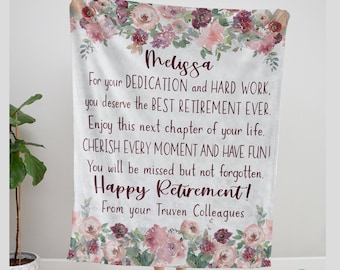 Melissa
For your DEDICATION and HARD WORK,
you deserve the BEST RETIREMENT EVER.
Enjoy this next chapter of your life.
CHERISH EVERY MOMENT AND HAVE FUN!
You will be missed but not forgotten.
Happy Retirement!
From your Truven Colleagues